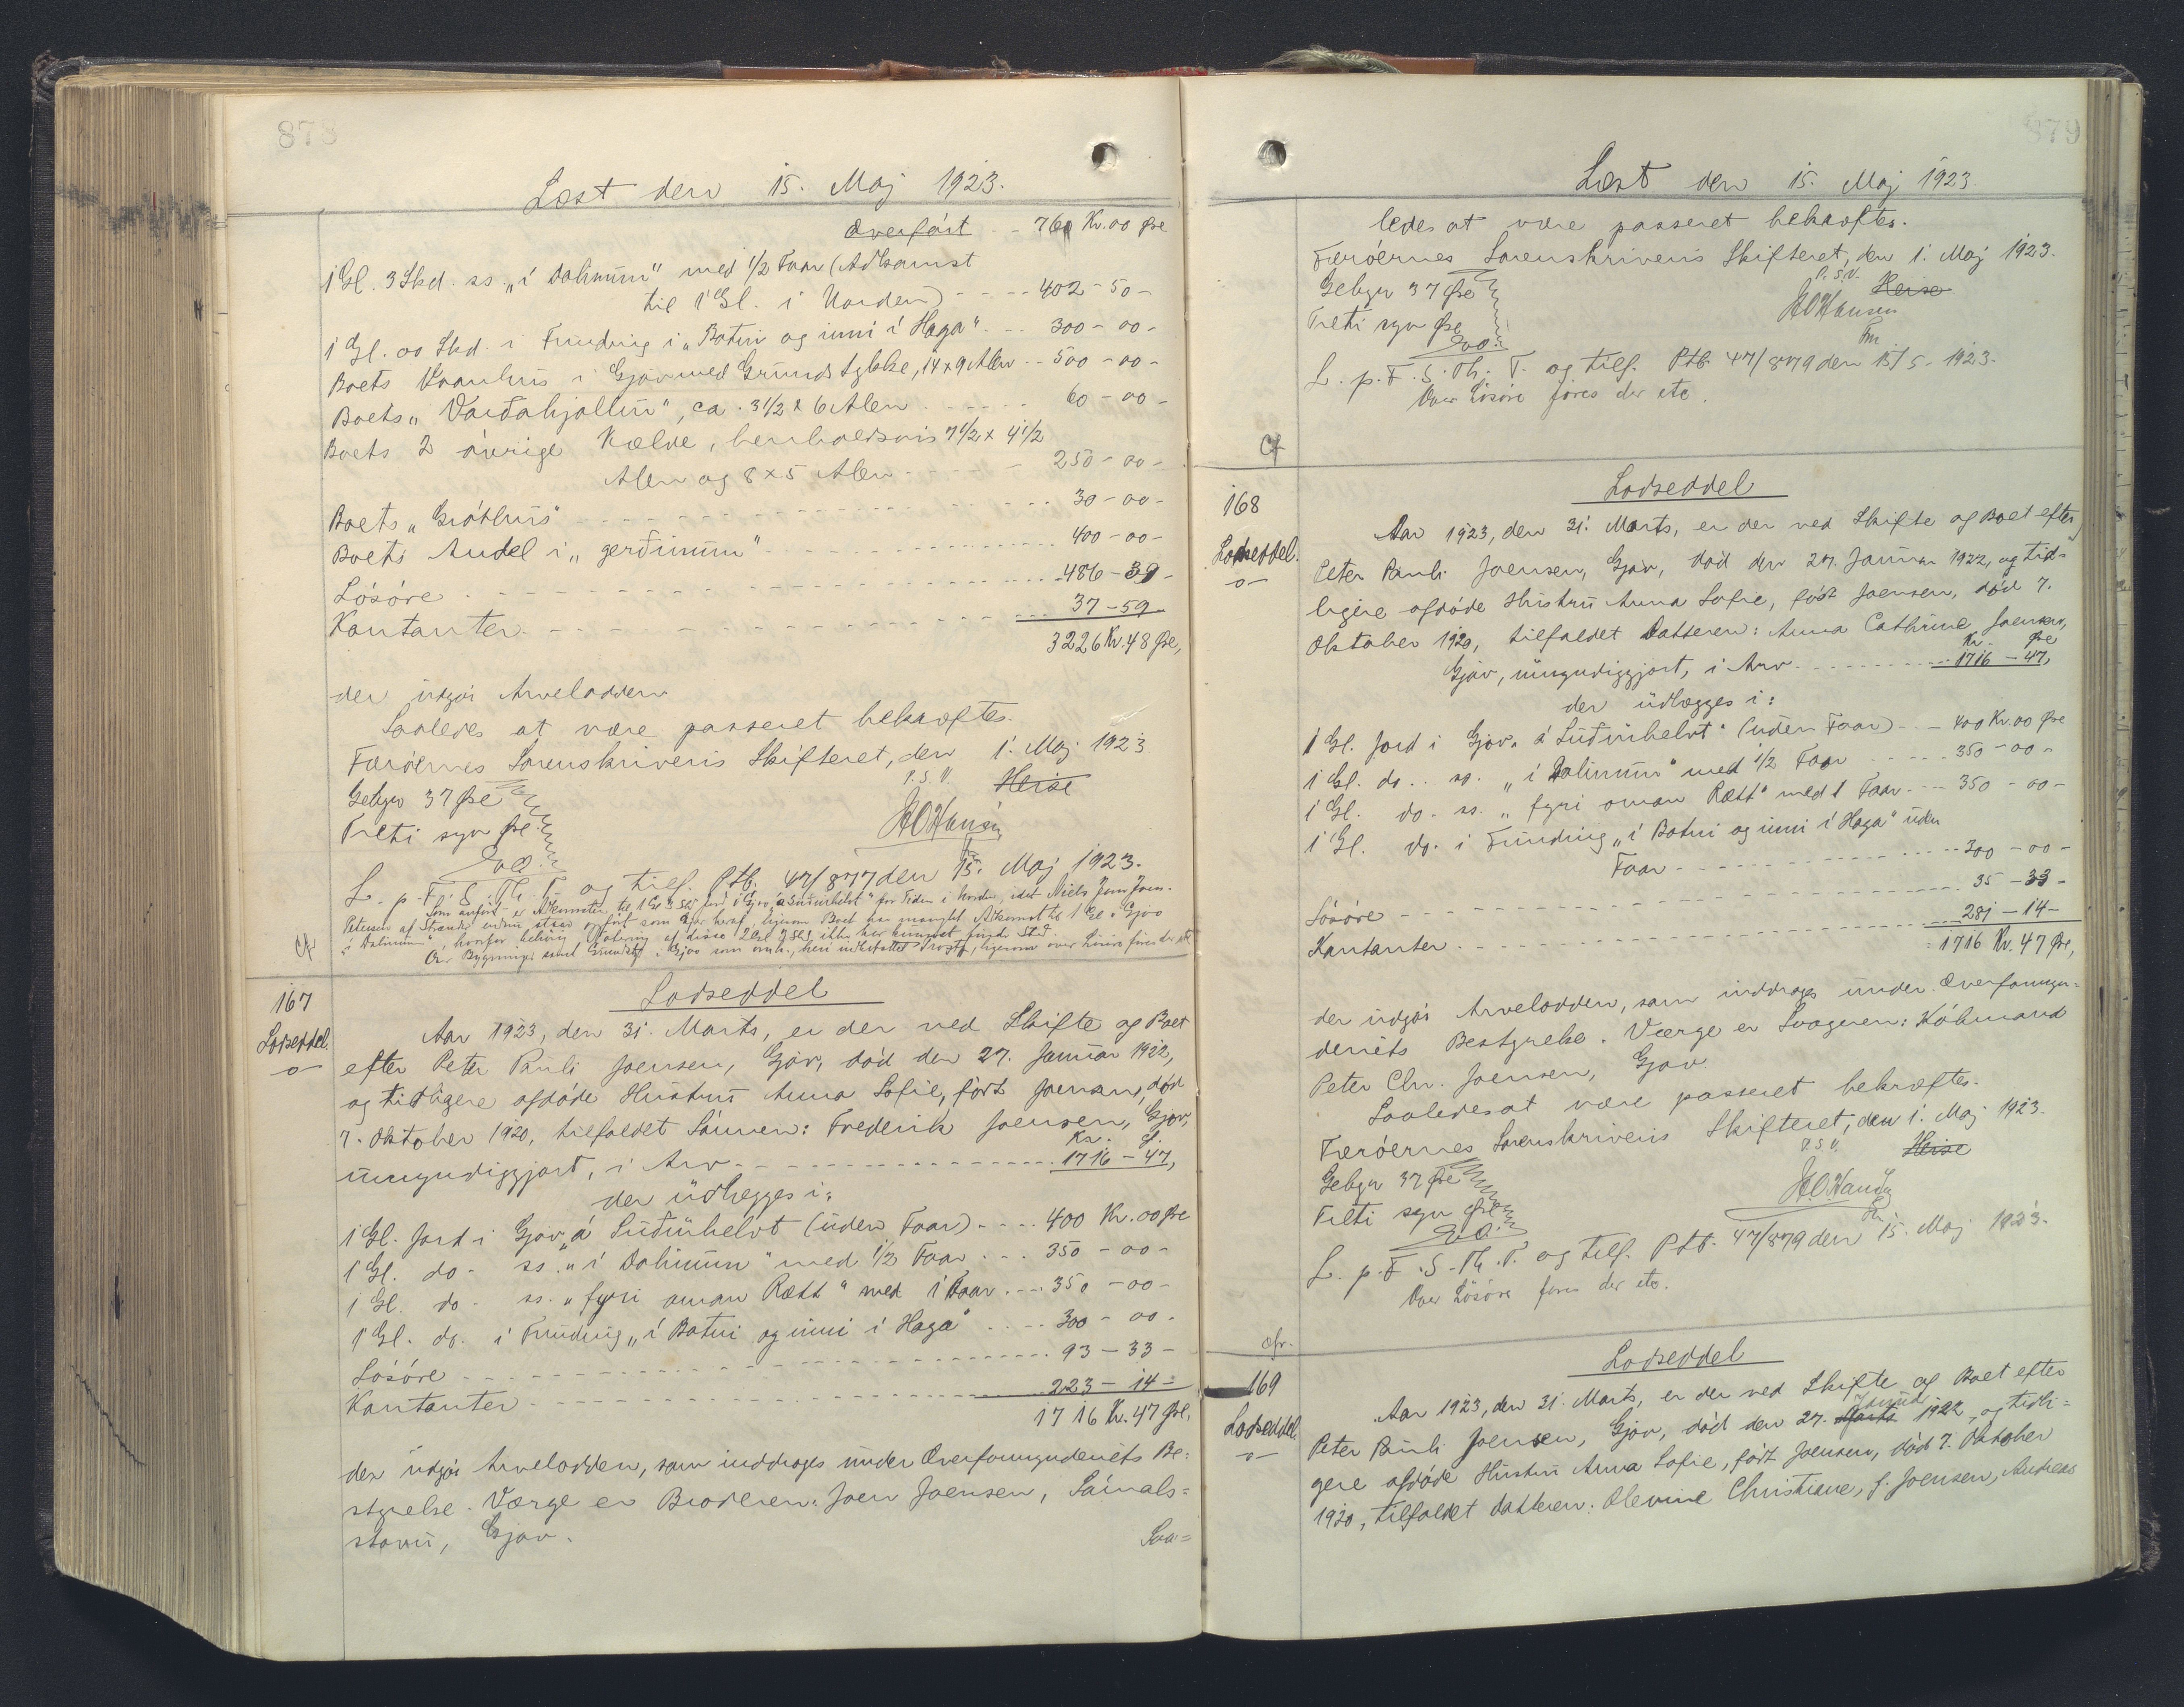 878
Læst den 15. Maj 1923.
Overført - - 760 Kr. 00 Øre
1 Gl. 3 Skd. ss. „í Dalinum“ med 1/2 Faar (Adkomst
til 1 Gl. i Norden) - - - - 402 - 50 -
1 Gl. 00 Skd. i Funding i „Botni og inni í Haga“ - - - 300 - 00 -
Boets Vaanhus i Gjov med Grundstykke, 14 x 9 Alen - - 500 - 00 -
Boets „Varðahjallin“, ca. 3 1/2 x 6 Alen - - - - - - 60 - 00 -
Boets 2 øvrige Kælde, henholdsvis 7 1/2 x 4 1/2
Alen og 8 x 5 Alen - - - - - 250 - 00 -
Boets „Gróthús“ - - - - - - - - 30 - 00 -
Boets Andel i „gerðinum“ - - - - - - - - 400 - 00 -
Løsøre - - - - - - - - 486 - 39 -
Kontanter - - - - - - - - 37 - 59 -
3226 Kr. 48 Øre,
der udgør Arvelodden.
Saaledes at være passeret bekræftes.
Færøernes Sorenskriveris Skifteret, den 1. Maj 1923
P.S.V. Heise
Gebyr 37 Øre
HOHansen
Treti syv Øre
Fm
L. p. F. S. Th. T. og tilf. Ptb. 47/877 den 15. Maj 1923.
Som anført er Adkomsten til 1 Gl 3 Skd Jord i Gjov „á Suðurhelvt“ for Tiden i Norden, idet Niels Juni Joen-
Petersen af
„í Dalinum“, hvorfor behørig Notering af disse 2 Gl 3 Skd ikke har kunnet finde Sted.
Cf
167
Lodseddel.
-o-
Lodseddel
Aar 1923, den 31. Marts, er der ved Skifte og Boet
efter Peter Pauli Joensen, Gjov, død den 27. Januar 1922,
og tidligere afdøde Hustru Anna Sofie, født Joensen, død
7. Oktober 1920, tilfaldet Sønnen: Frederik Joensen, Gjov,
Kr. Ø.
umyndiggjort, i Arv - - - - - - - - 1716 - 47,
der udlægges i:
1 Gl. Jord i Gjov „á Suðurhelvt (uden Faar) - - - - 400 Kr. 00 Øre
1 Gl. do - ss. „í Dalinum“ med 1/2 Faar - - - 350 - 00 -
1 Gl. do - ss. „fyri oman Rætt“ med 1 Faar - - - 350 - 00 -
1 Gl. do. i Funding „í Botni og inni í Haga“ - - - - 300 - 00 -
Løsøre - - - - - - - - 93 - 33 -
Kontanter - - - - - - - - 223 - 14 -
1716 Kr. 47 Øre,
der udgør Arvelodden, som inddrages under Overformynderiets Be-
styrelse. Værge er Broderen: Joen Joensen, Sámals-
stovu, Gjov.
Saa=
879
Læst den 15. Maj 1923.
ledes at være passeret bekræftes.
Færøernes Sorenskriveris Skifteret, den 1. Maj 1923.
P.S.V. Heise
Gebyr 37 Øre
HOHansen
Treti syv Øre
Fm
L. p. F. S. Th. T. og tilf. Ptb. 47/879 den 15/5 - 1923.
Over Løsøre føres der etc.
Cf
168
Lodseddel.
-o-
Lodseddel
Aar 1923, den 31. Marts, er der ved Skifte og Boet efter
Peter Pauli Joensen, Gjov, død den 27. Januar 1922, og tid-
ligere afdøde Hustru Anna Sofie, født Joensen, død 7.
Oktober 1920, tilfaldet Datteren: Anna Cathrine Joensen,
Kr. Øre
Gjov, umyndiggjort, i Arv - - - - - - - - 1716 - 47,
der udlægges i:
1 Gl. Jord i Gjov „á Suðurhelvt“ (uden Faar) - - - 400 Kr. 00 Øre
1 Gl. do - ss. „í Dalinum“ med 1/2 Faar - - - - - 350 - 00 -
1 Gl. do - ss. „fyri oman Rætt“ med 1 Faar - - - 350 - 00 -
1 Gl. do. i Funding „í Botni og inni í Haga“ uden
Faar - - - - - - - - 300 - 00 -
Løsøre - - - - - - - - 35 - 33 -
Kontanter - - - - - - - - 281 - 14 -
1716 Kr. 47 Øre,
der udgør Arvelodden, som inddrages under Overformyn-
deriets Bestyrelse. Værge er Svogeren: Købmand
Peter Chr. Joensen, Gjov.
Saaledes at være passeret bekræftes.
Færøernes Sorenskriveris Skifteret, den 1. Maj 1923.
P.S.V. Heise
Gebyr 37 Øre
HOHansen
Treti syv Øre
Fm
L. p. F. S. Th. T. og tilf. Ptb. 47/879 den 15. Maj 1923.
Over Løsøre føres der etc.
cfr.
169
Lodseddel.
-o-
Lodseddel
Aar 1923, den 31. Marts, er der ved Skifte og Boet efter
Januar
Peter Pauli Joensen, Gjov, død den 27. Marts 1922, og tidli=
gere afdøde Hustru Anna Sofie, født Joensen, død 7. Oktober
1920, tilfaldet Datteren: Olevine Christiane, f. Joensen, Andreas